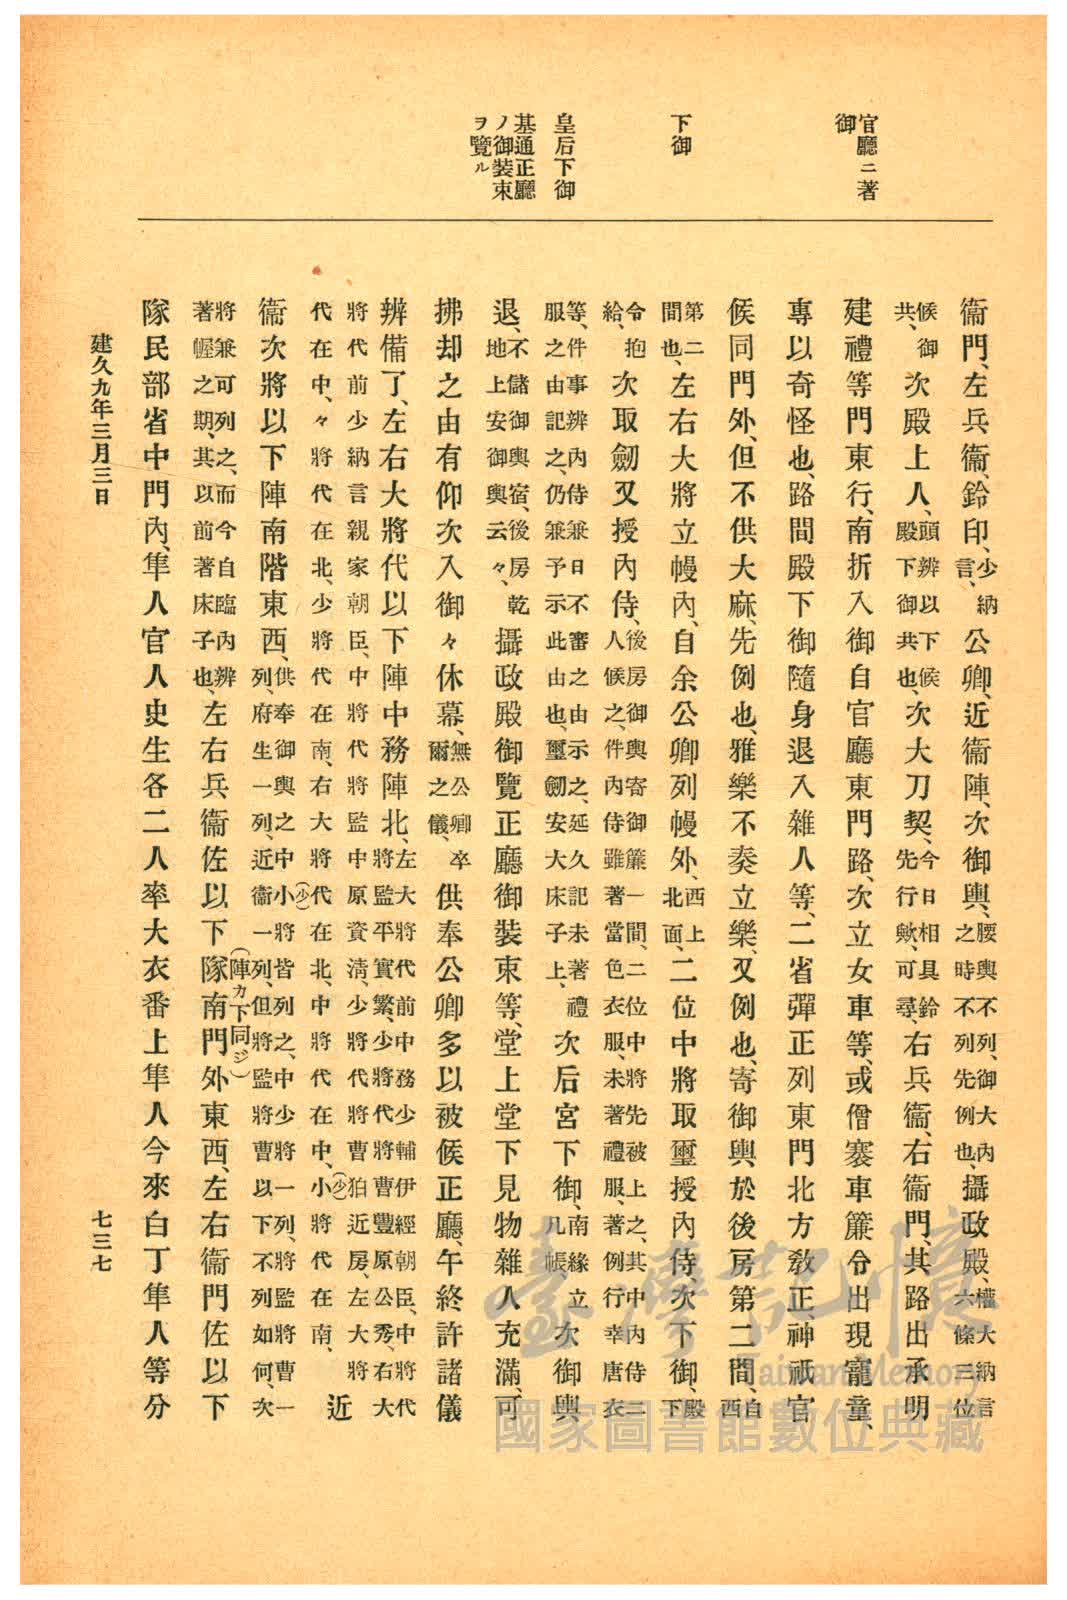 官廳ニ著
御
下御
皇后下御
基通正廳
ノ御裝束
ヲ覽ル
衞門、左兵衞、鈴印、少納言、公卿、近衞陣、次御輿、腰輿不列、御大內之時不列先例也、攝政殿、權大納言六條三位
候御共、次殿上人、頭辨以下候殿下御共也、次大刀契、今日相具鈴先行歟、可尋、右兵衞、右衞門、其路出承明
建禮等門東行、南折入御自官廳東門路、次立女車等、或僧褰車簾令出現寵童、
專以奇怪也、路間殿下御隨身退入雜人等、二省彈正列東門北方敎正、神祇官
候同門外、但不供大麻、先例也、雅樂不奏立樂、又例也、寄御輿於後房第二間、自西
第二間也、左右大將立幔內、自余公卿列幔外、西上北面、二位中將取璽授內侍、次下御、殿下
令抱給、次取劒又授內侍、後房御輿寄御簾一間、二位中將先被上之、其中內侍二人候之、件內侍雖著當色衣服、未著禮服、著例行幸唐衣
等、件事辨內侍兼日不審之由示之、延久記未著禮服之由記之、仍兼予示此由也、璽劒安大床子上、次后宮下御、南緣立几帳、次御輿
退、不儲御輿宿、後房乾地上安御輿云々、攝政殿御覽正廳御裝束等、堂上堂下見物雜人充滿、可
拂却之由有仰次入御々休幕、無公卿卒爾之儀、供奉公卿多以被候正廳、午終許諸儀
辨備了、左右大將代以下陣中務陣北、左大將代前中務少輔伊經朝臣、中將代將監平實繁、少將代將曹豐原公秀、右大
將代前少納言親家朝臣、中將代將監中原資淸、少將代將曹狛近房、左大將
代在中、々將代在北、少將代在南、右大將代在北、中將代在中、小(少)將代在南、近
衞次將以下陣南階東西、供奉御輿之中小(少)將皆列之、中少將一列、將監將曹一列、府生一列、近衞一列、但將監將曹以下不列如何、次
將兼可列之、而今自臨內辨著幄之期、其以前著床子也、左右兵衞佐以下隊(陣カ下同ジ)南門外東西、左右衞門佐以下
隊民部省中門內、隼人官人史生各二人率大衣番上隼人今來白丁隼人等分
建久九年三月三日
七三七
臺灣記憶
Taiwan Memory
國家圖書館數位典藏